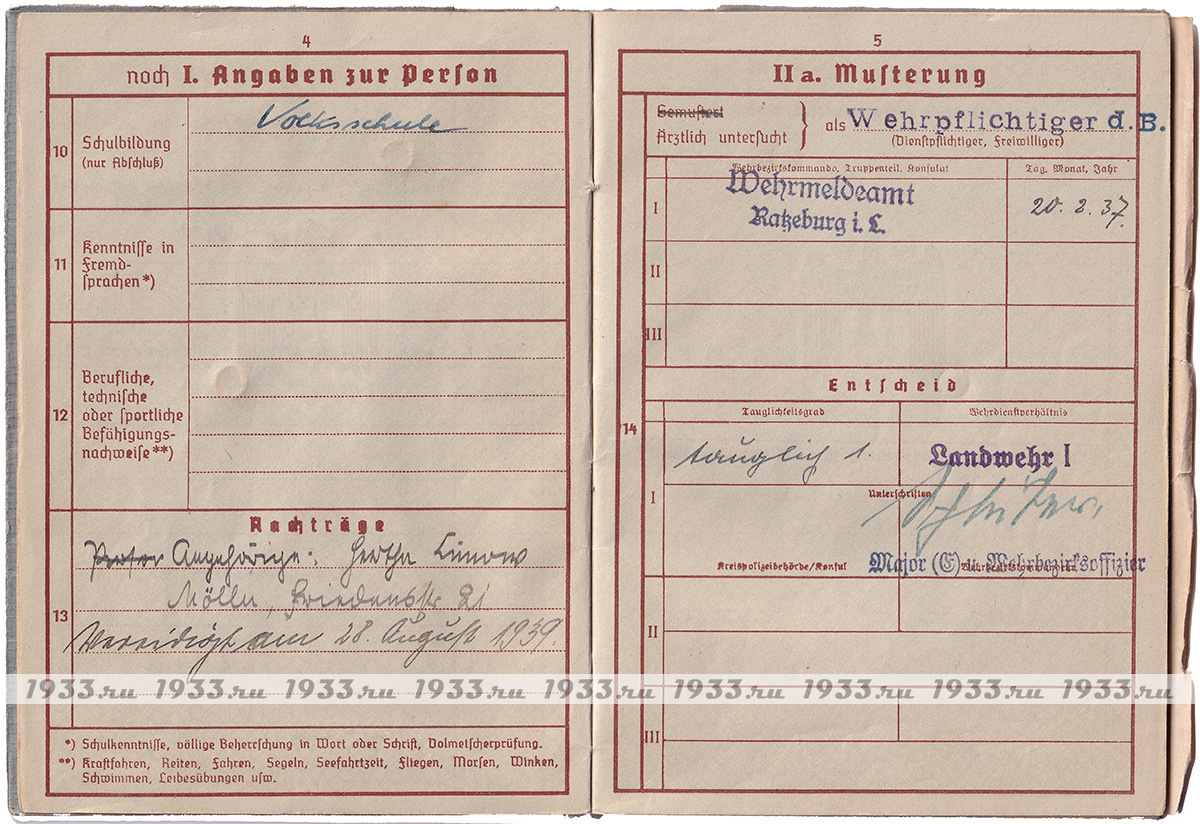 4
noch I. Angaben zur Person
10
Schulbildung
(nur Abschluß)
Volksschule
11
Kenntnisse in
Fremd-
sprachen*)
12
Berufliche,
technische
oder sportliche
Befähigungs-
nachweise**)
13
Nachträge
Angehörige: Hertha Linow
Mölln, Friedensstr 21
Vereidigt am 28. August 1939.
*) Schulkenntnisse, völlige Beherrschung in Wort oder Schrift, Dolmetscherprüfung.
**) Kraftfahren, Reiten, Fahren, Segeln, Seefahrtzeit, Fliegen, Morsen, Winken,
Schwimmen, Leibesübungen usw.
5
IIa. Musterung
Gemustert
Ärztlich untersucht
als Wehrpflichtiger d. B.
(Dienstpflichtiger, Freiwilliger)
Wehrbezirkskommando, Truppenteil, Konsulat
Tag, Monat, Jahr
I
Wehrmeldeamt
Ratzeburg i. L.
20. 2. 37.
II
III
Entscheid
14
Tauglichkeitsgrad
Wehrdienstverhältnis
I
tauglich 1.
Landwehr I
Unterschriften
Kreispolizeibehörde/Konsul
Major (E) u. Wehrbezirksoffizier
II
III
1933.ru 1933.ru 1933.ru 1933.ru 1933.ru 1933.ru 1933.ru 1933.ru 1933.ru